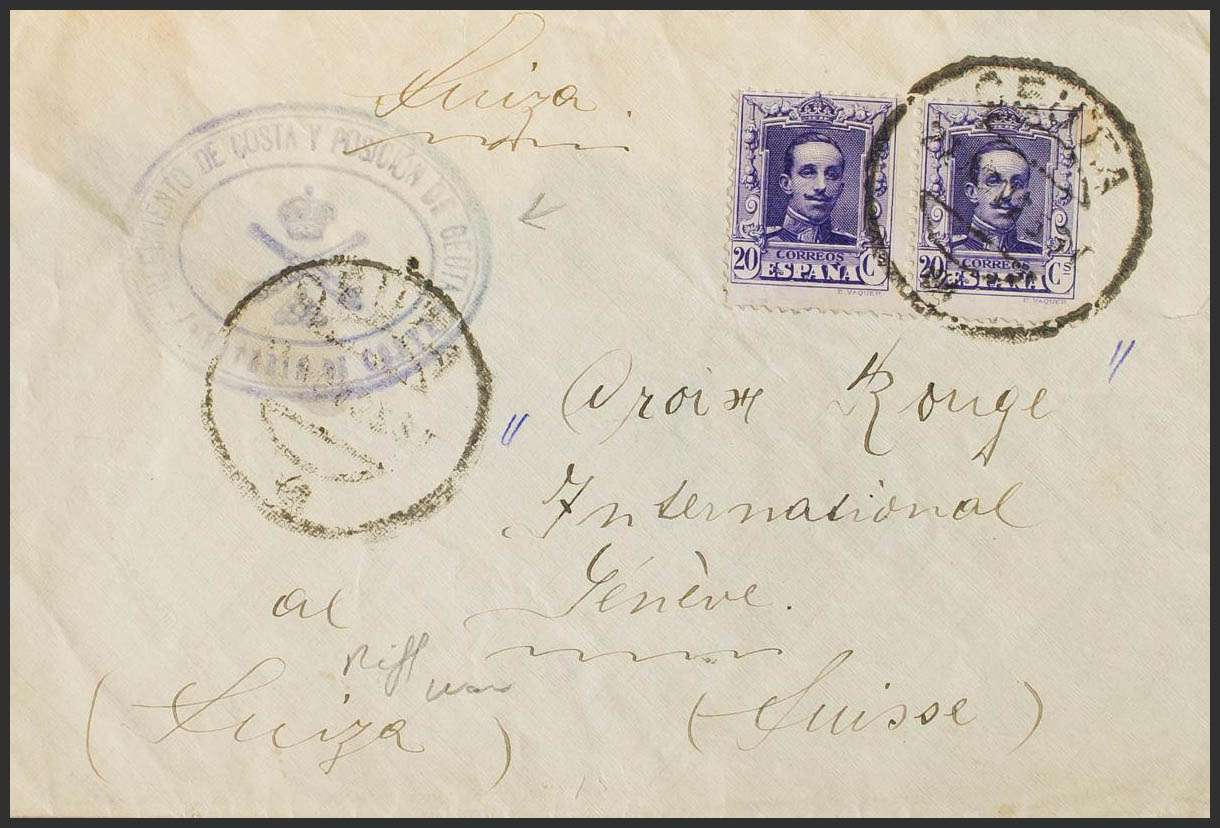 Suiza.
REGIMIENTO DE COSTA Y POSICIÓN DE CEUTA
DE COSTA
CORREOS
20 ESPAÑA Cs
E. VAQUER
CEUTA
CORREOS
20 ESPAÑA Cs
E. VAQUER
CEUTA
" Croix Rouge "
International
Génève.
al
Riff war
(Suiza)
(Suisse)